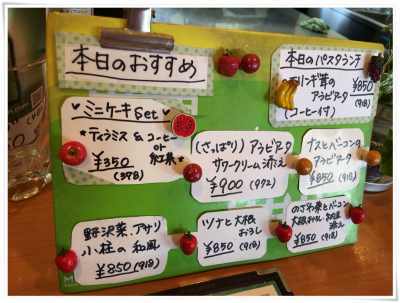 本日のおすすめ
ミニケーキset
*ティラミス & コーヒー
or
紅茶*
¥350
(378)
本日のパスタランチ
エリンギ茸の
アラビアータ
¥850
(918)
(コーヒー付)
(さっぱり) アラビアータ
サワークリーム添え
¥900 (972)
ナスとベーコンの
アラビアータ
¥850 (918)
野沢菜、アサリ
小柱の和風
¥850 (918)
ツナと大根
おろし
¥850 (918)
のざわ菜とベーコン
大根おろし
添え
¥850 (918)